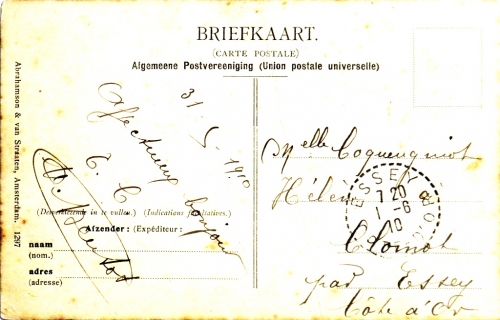 BRIEFKAART.
(CARTE POSTALE)
Algemeene Postvereeniging (Union postale universelle)
Abrahamson & van Straaten, Amsterdam. 1297
31 - 5 - 1910
Affectueux bonjour
T. C
(Desverkiezende in te vullen.) (Indications facultatives.)
Afzender: (Expéditeur:)
naam
(nom.)
adres
(adresse)
Melle Coquengniot
Hélène
Clomot
par Essey
Côte d'Or
ESSEY
7 20
1 - 6
10